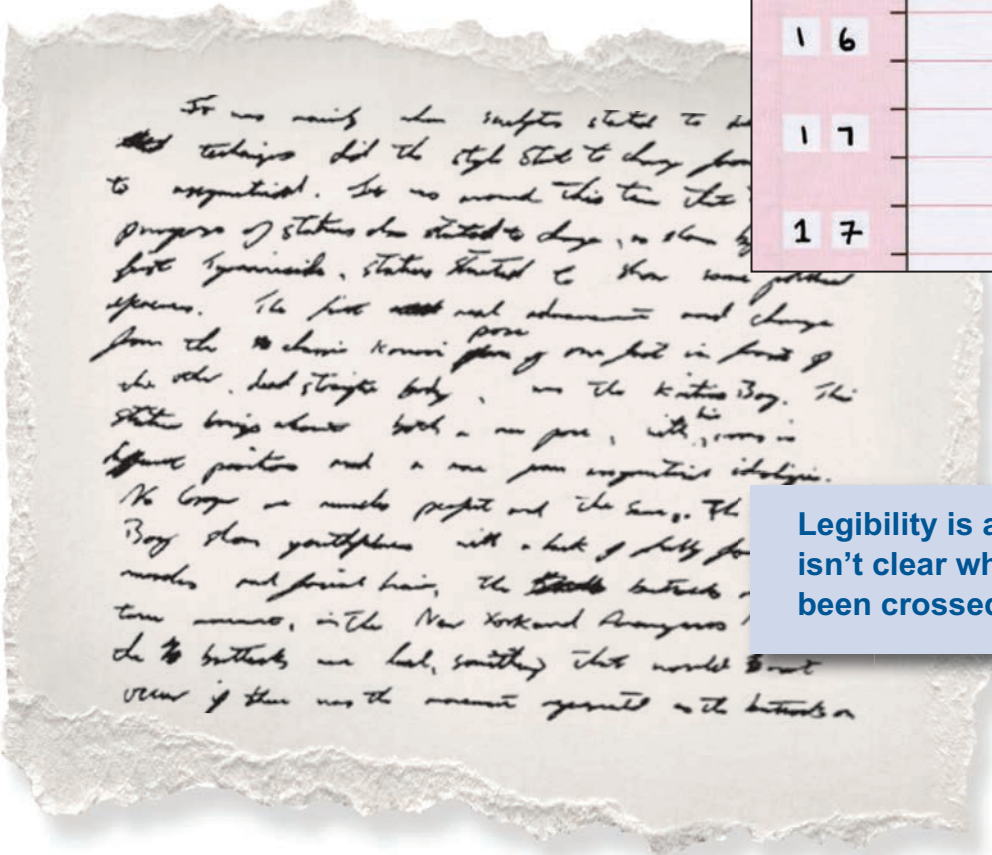 1 6
1 7
1 7
It was mainly when sculptors started to
techniques did the style start to change from
to . It was around this time that
purpose of statues also started to change, as shown by
first Tyrannicide, statues started to show some political
. The first real advancement and change
from the classic Kouroi pose of one foot in front of
the other, dead straight body, was the Kritios Boy. This
statue brings about both a new pose, with his arms in
different positions and a more .
No longer are muscles perfect and the same. The
Boy shows youthfulness with a lack of fully
muscles and facial hair, the buttocks
tone , in the New York and Anavyssos
the buttocks are , something that would not
occur if there was the movement as the buttocks on
Legibility is a
isn't clear wh
been crossed